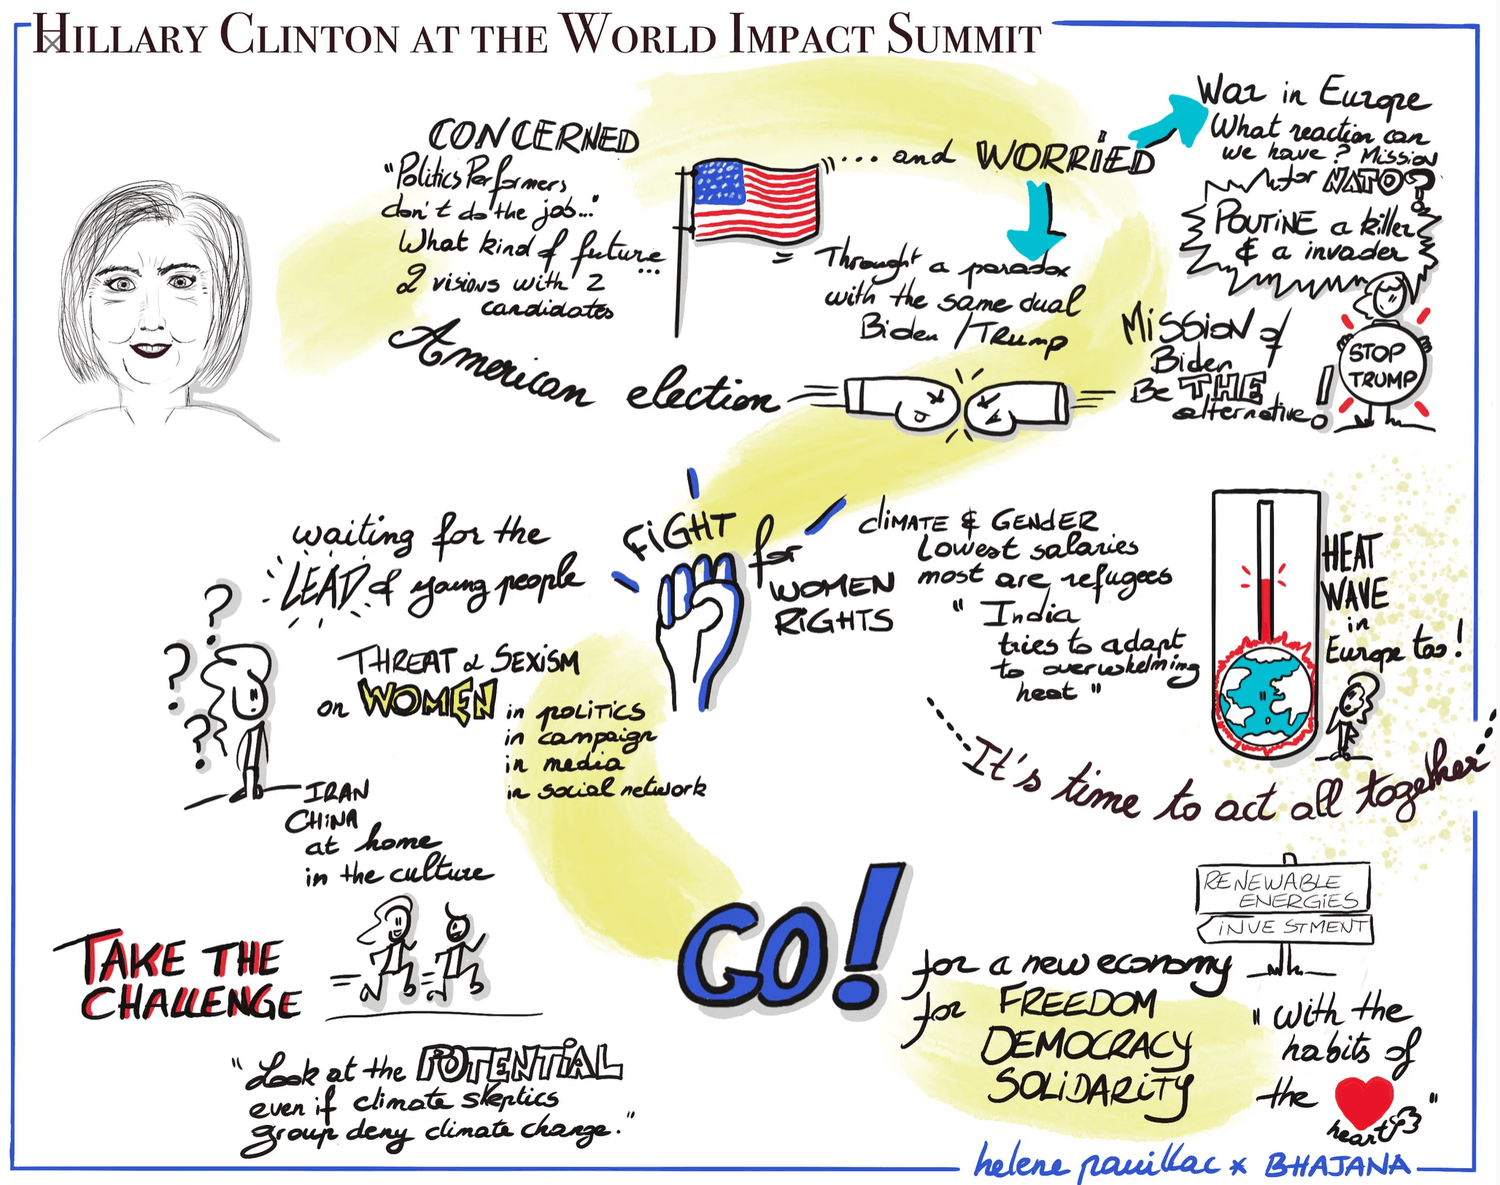 HILLARY CLINTON AT THE WORLD IMPACT SUMMIT
CONCERNED
"Politics Performers
don't do the job..."
What kind of future...
2 visions with 2
candidates
American election
... and WORRIED
Throught a paradox
with the same dual
Biden / Trump
War in Europe
What reaction can
we have? Mission
for NATO?
POUTINE a killer
& a invader
Mission of
Biden
Be THE
alternative!
STOP
TRUMP
waiting for the
LEAD of young people
THREAT & SEXISM
on WOMEN
in POLITICS
in campaign
in media
in social network
IRAN
CHINA
at home
in the culture
FIGHT
for
WOMEN
RIGHTS
CLIMATE & GENDER
Lowest salaries
most are refugees
"India
tries to adapt
to overwhelming
heat"
HEAT
WAVE
in
Europe too!
It's time to act all together
TAKE THE
CHALLENGE
"Look at the POTENTIAL
even if climate skeptics
group deny climate change."
GO!
for a new economy
for FREEDOM
DEMOCRACY
SOLIDARITY
RENEWABLE
ENERGIES
INVESTMENT
"with the
habits of
the
heart"
helene pauillac x BHAJANA